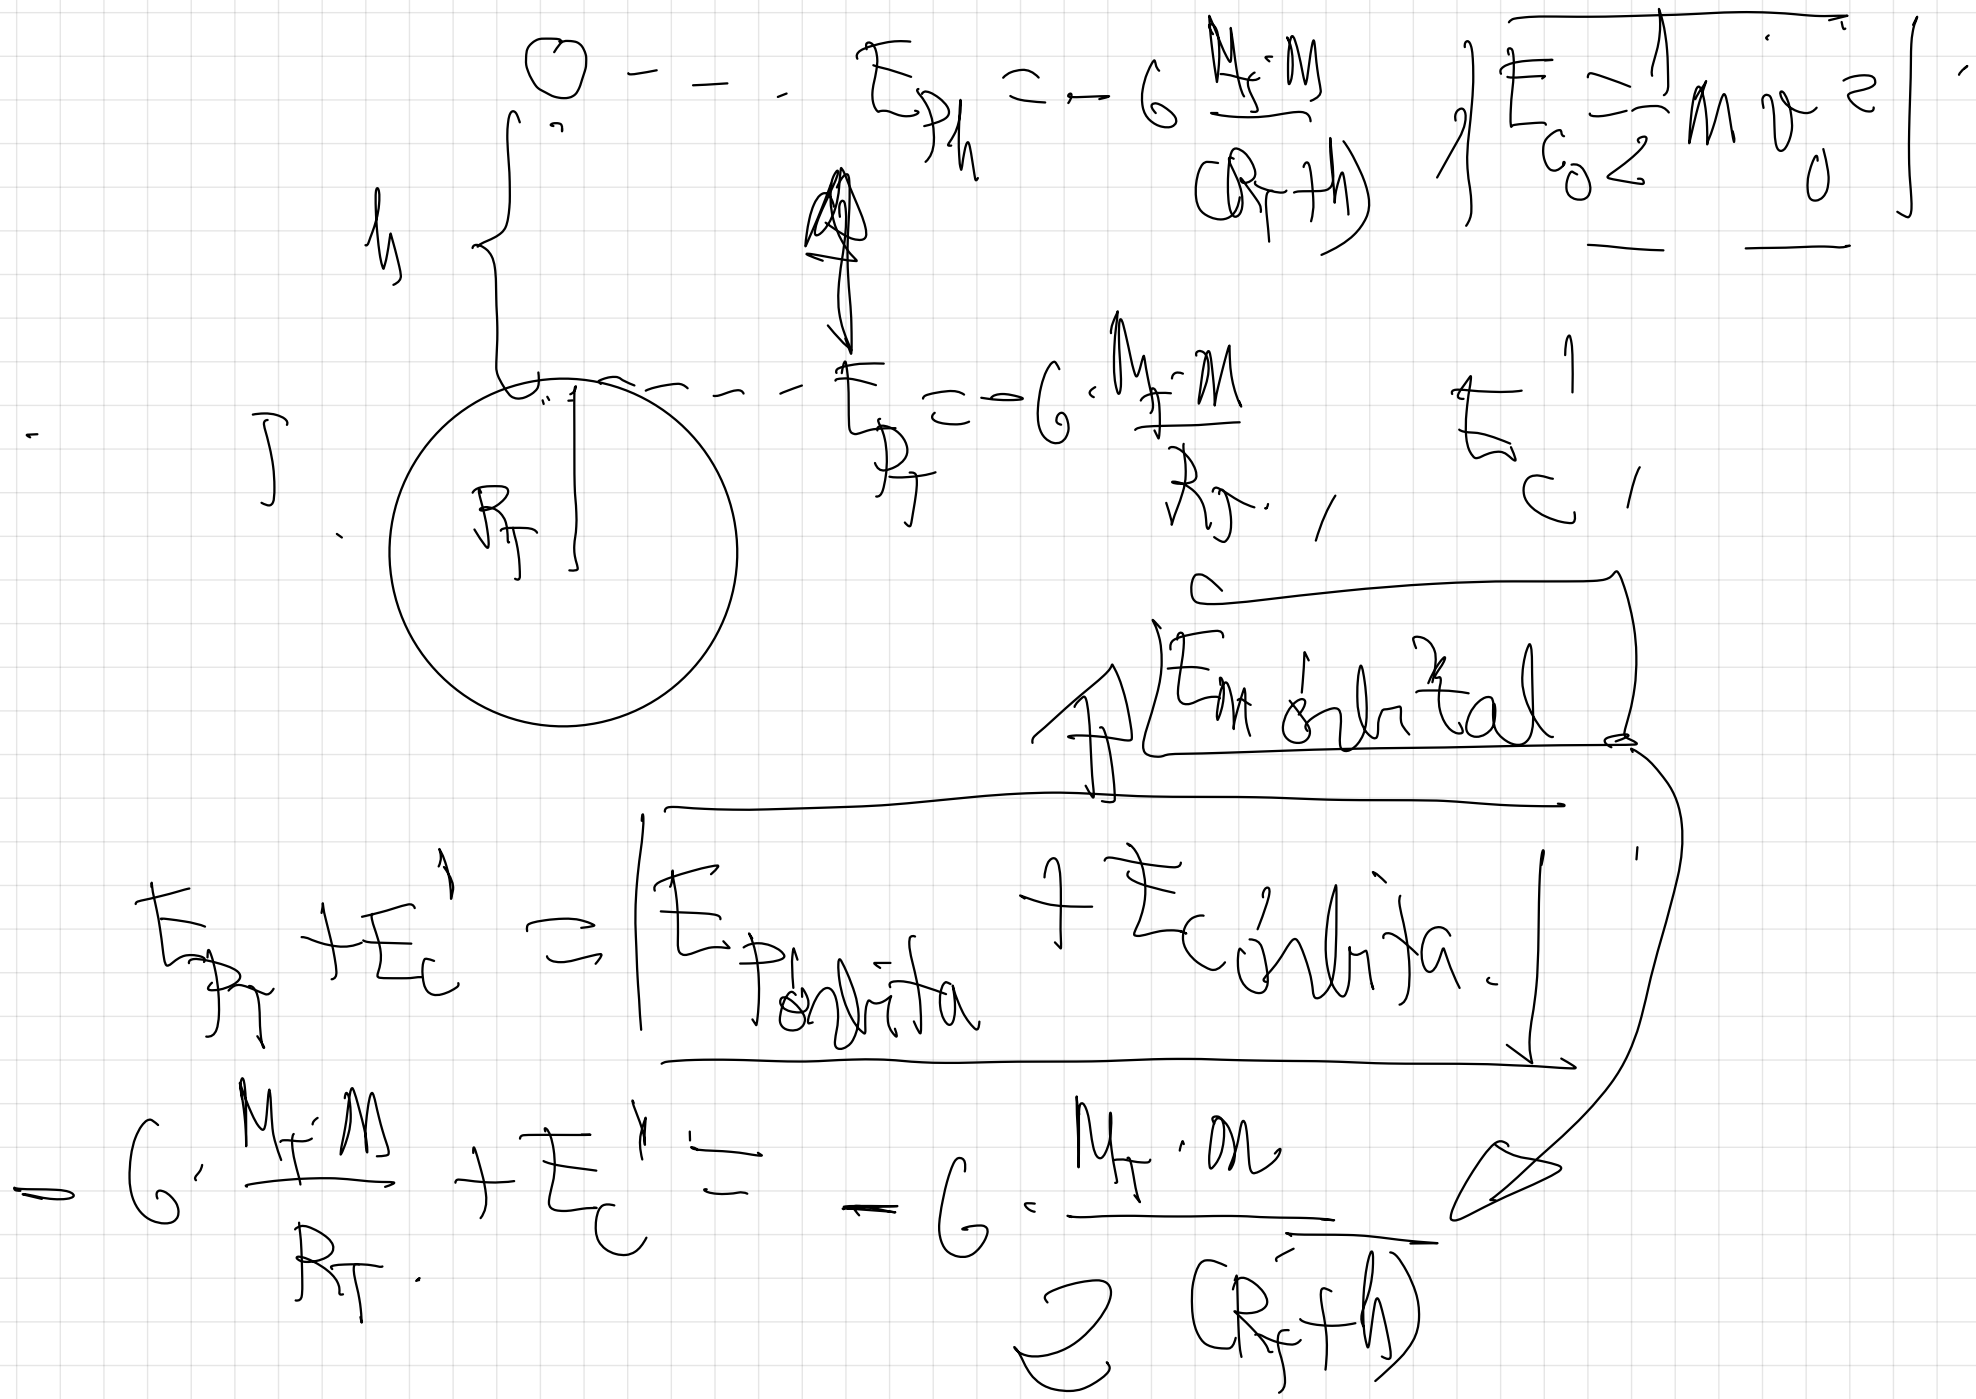 E_ph = - G M_T · m / (R_T + h) , E_c0 = 1/2 m v_0^2
h
E_pT = - G · M_T · m / R_T , E_c'
R_T
E_m órbital
E_pT + E_c' = E_p órbita + E_c órbita.
- G · M_T · m / R_T + E_c' = - G · M_T · m / 2 (R_T + h)